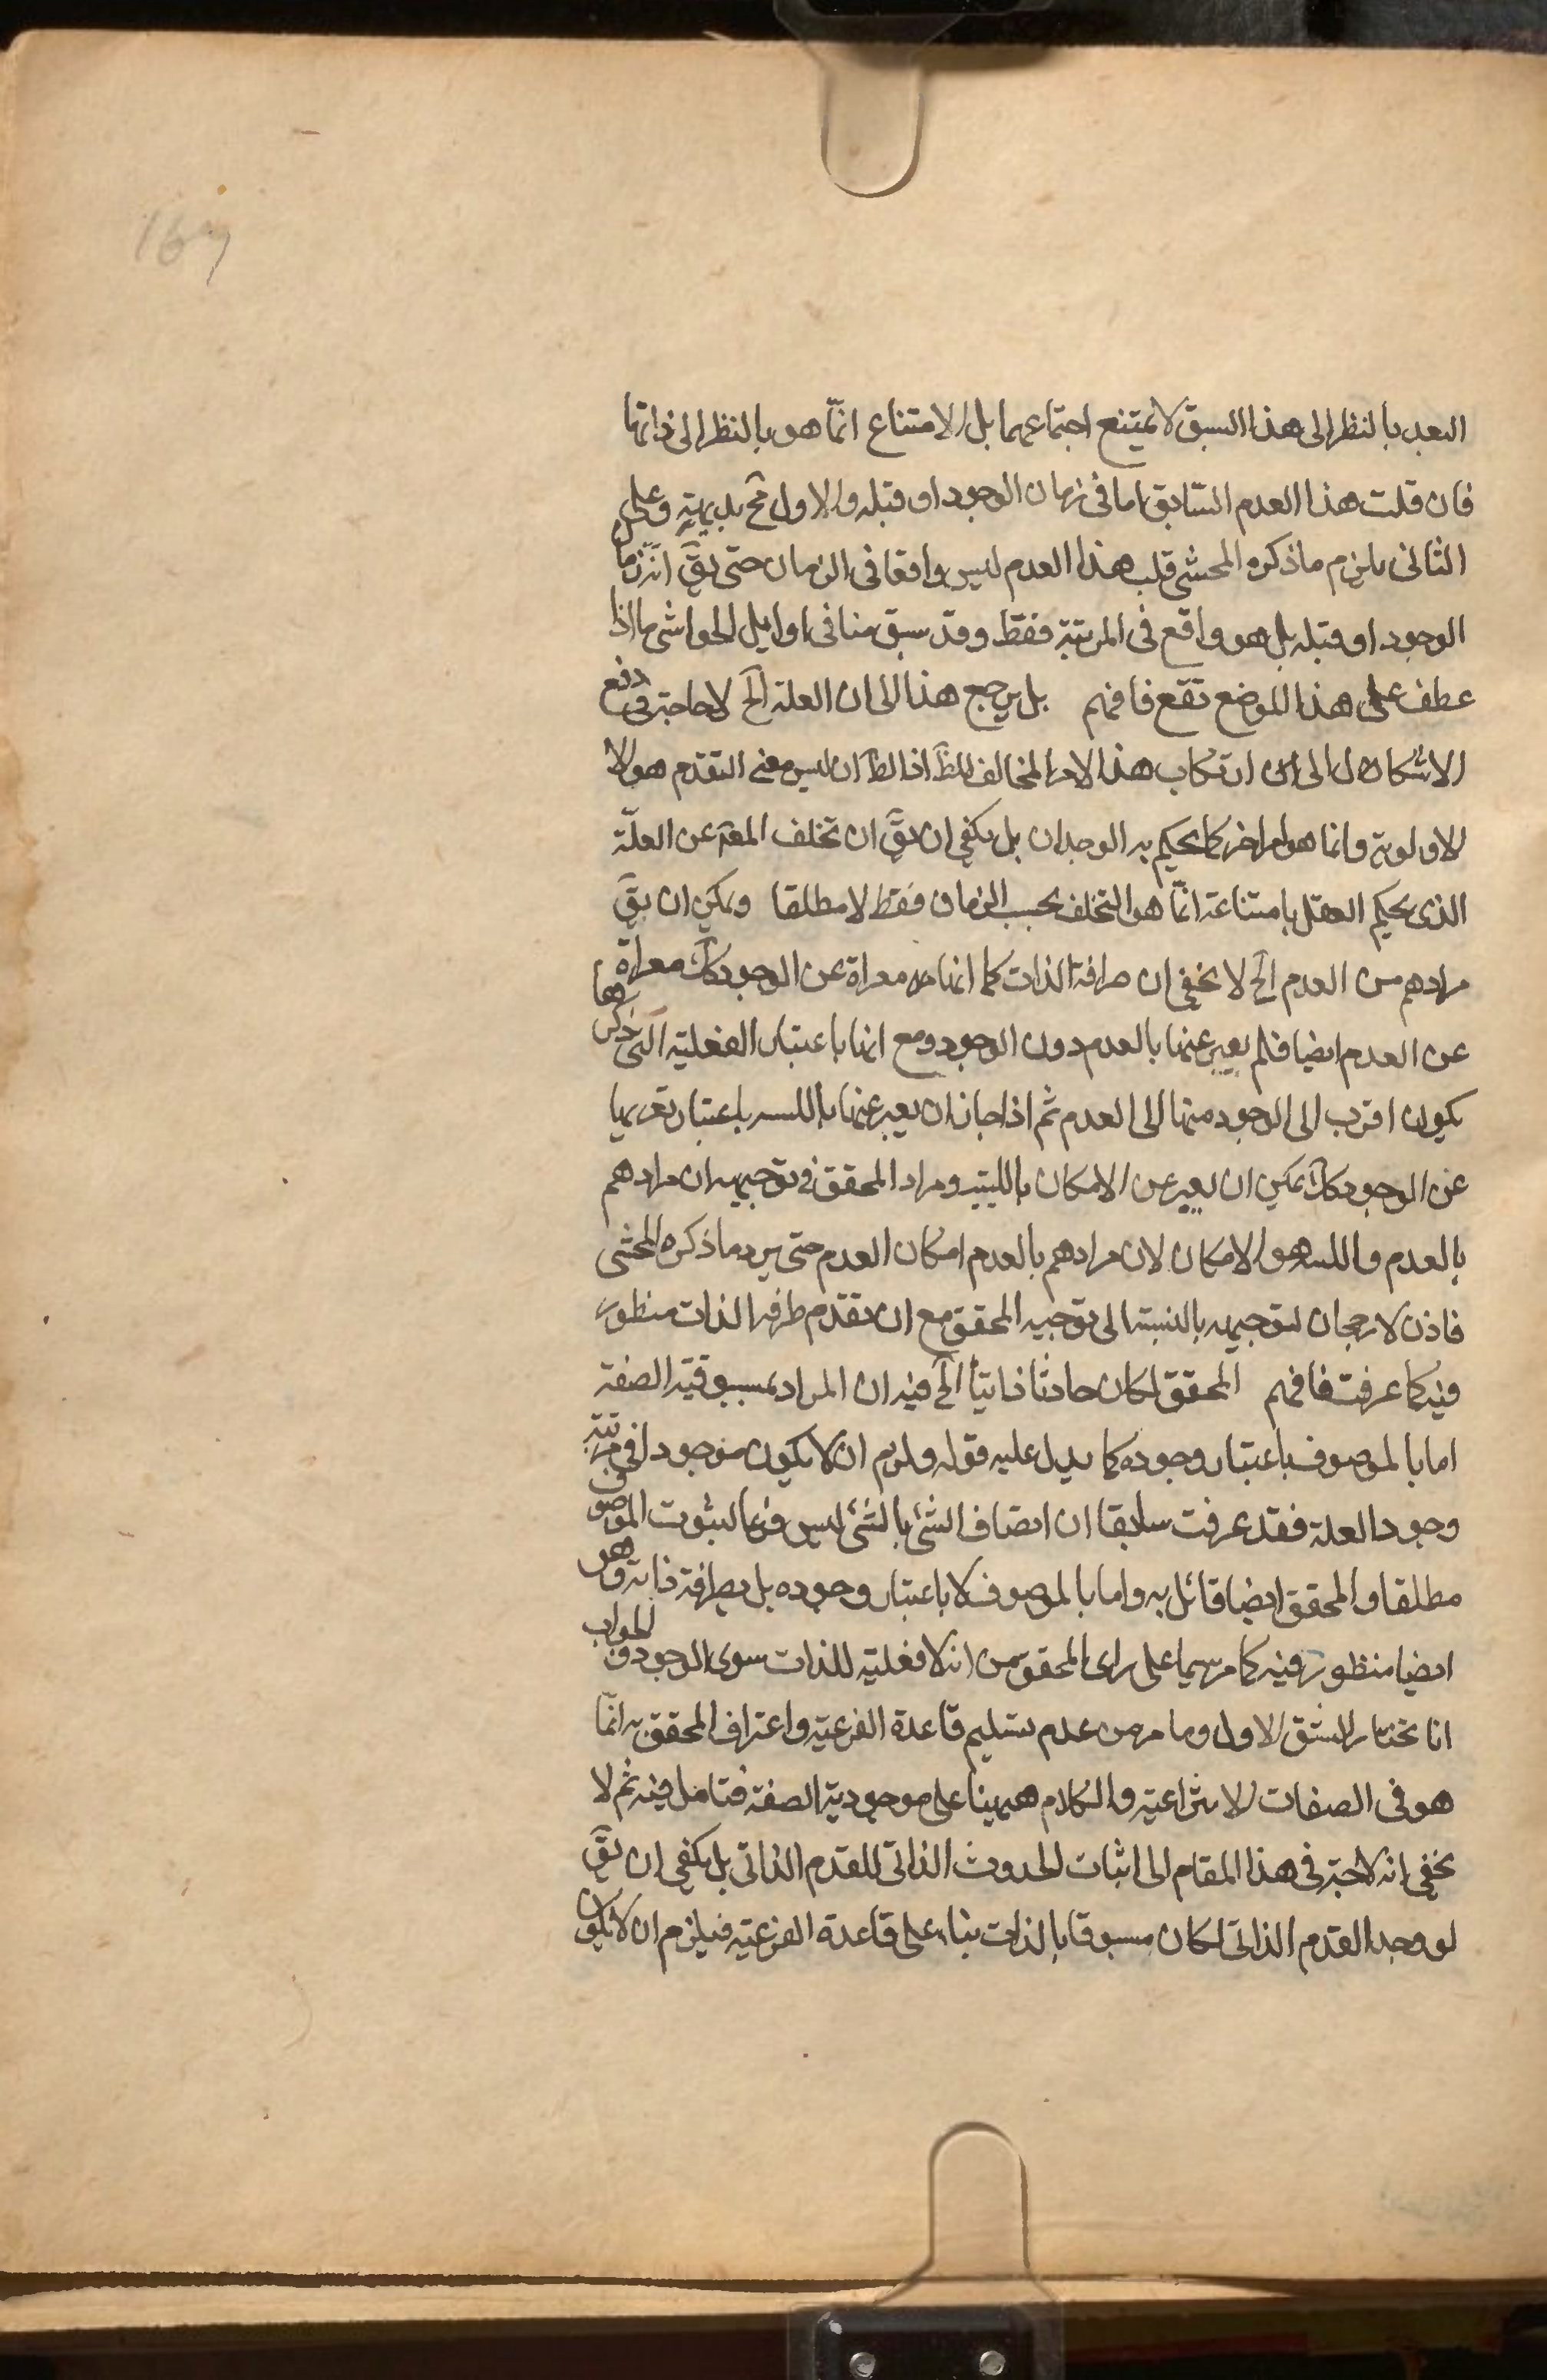 167
البعد بالنظر الى هذا السبق لا يمتنع اجتماعهما بل الامتناع انمّا هو بالنظر الى ذاتها
فان قلت هذا العدم السّابق اما فى زمان الوجود او قبله والاول مح بديهة وعلى
الثانى يلزم ما ذكره المحشى قلت هذا العدم ليس واقعا فى الزمان حتى يقَ انه زمان
الوجود او قبله بل هو واقع فى المرتبة فقط وقد سبق منا فى اوايل الحواشى ما اذا
عطف على هذا الموضع نفع فافهم بل يرجع هذا الى ان العلة الخ لا حاجة فى دفع
الاشكال الى ارتكاب هذا الامر المخالف للظَ اذ الظَ ان ليس معنى التقدم هو الا
الاولوية وانما هو امر اخر كما يحكم به الوجدان بل يكفى ان يقَ ان تخلف المعَم عن العلّة
الذى يحكم العقل بامتناعة انمّا هو التخلف بحسب الزمان فقط لا مطلقا ويمكن ان يقَ
مرادهم من العدم الخ لا يخفى ان صرافة الذات كما انها معراة عن الوجود كك معراة
عن العدم ايضا فلم يعبر عنها بالعدم دون الوجود ومع انها باعتبار الفعلية التى ذكرها
يكون اقرب الى الوجود منها الى العدم ثم اذا جاز ان يعبر عنها بالليس باعتبار تعريها
عن الوجود كك يمكن ان يعبر عن الامكان بالليس ومراد المحقق فى توجيهه ان مرادهم
بالعدم والليس هو الامكان لا ان مرادهم بالعدم امكان العدم حتى يرد ما ذكره المحشى
فاذن لا رجحان لتوجيهه بالنسبة الى توجيه المحقق مع ان تقدم صرافة الذات منظور
فيه كما عرفت فافهم المحقق لكان حادثا ذاتيا الخ فيه ان المراد بمسبوقية الصفة
اما بالموصوف باعتبار وجوده كما يدل عليه قوله ولزم ان لا يكون موجودا فى مرتبة
وجود العلة فقد عرفت سابقا ان اتصاف الشئ بالشئ ليس فرعا لثبوت الموصوف
مطلقا والمحقق ايضا قائل به واما بالموصوف لا باعتبار وجوده بل بصرافة ذاته وهو
ايضا منظور فيه كما مر سيما على راى المحقق من انه لا فعلية للذات سوى الوجود والجواب
انا نختار الشق الاول وما مر من عدم تسليم قاعدة الفرعية واعتراف المحقق به انمّا
هو فى الصفات الانتزاعية والكلام هيهنا على موجودية الصفة فتامل فيه ثم لا
يخفى انه لا حاجة فى هذا المقام الى اثبات الحدوث الذاتى للقدم الذاتى بل يكفى ان يقَ
لو وجد القدم الذاتى لكان مسبوقا بالذات بناء على قاعدة الفرعية فيلزم ان لا يكون